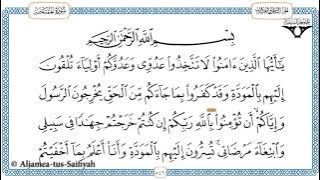 بِسْمِ اللَّهِ الرَّحْمَٰنِ الرَّحِيمِ
يَا أَيُّهَا الَّذِينَ آمَنُوا لَا تَتَّخِذُوا عَدُوِّي وَعَدُوَّكُمْ أَوْلِيَاءَ تُلْقُونَ
إِلَيْهِم بِالْمَوَدَّةِ وَقَدْ كَفَرُوا بِمَا جَاءَكُم مِّنَ الْحَقِّ يُخْرِجُونَ الرَّسُولَ
وَإِيَّاكُمْ أَن تُؤْمِنُوا بِاللَّهِ رَبِّكُمْ إِن كُنتُمْ خَرَجْتُمْ جِهَادًا فِي سَبِيلِي
وَابْتِغَاءَ مَرْضَاتِي تُسِرُّونَ إِلَيْهِم بِالْمَوَدَّةِ وَأَنَا أَعْلَمُ بِمَا أَخْفَيْتُمْ
© Aljamea-tus-Saifiyah